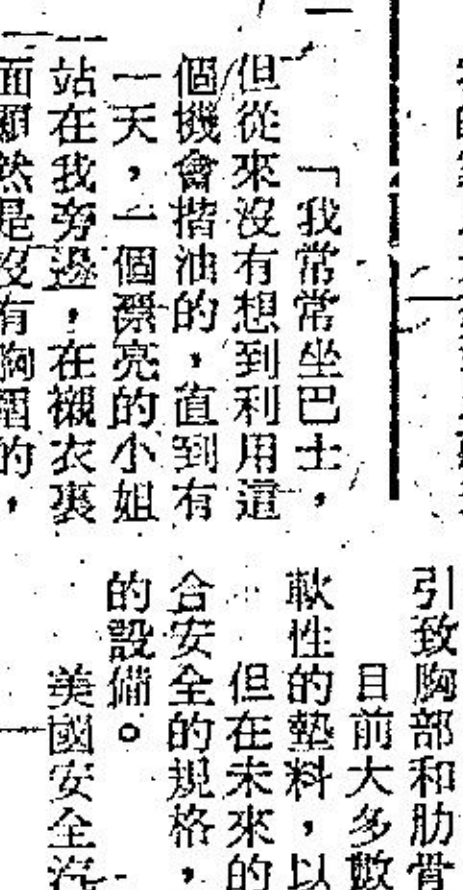 「我常常坐巴士，
但從來沒有想到利用這
個機會揩油的，直到有
一天，一個漂亮的小姐
站在我旁邊，在襯衣裏
面顯然是沒有胸罩的，
引致胸部和肋骨
目前大多數
軟性的墊料，以
但在未來的
合安全的規格，
的設備。
美國安全汽